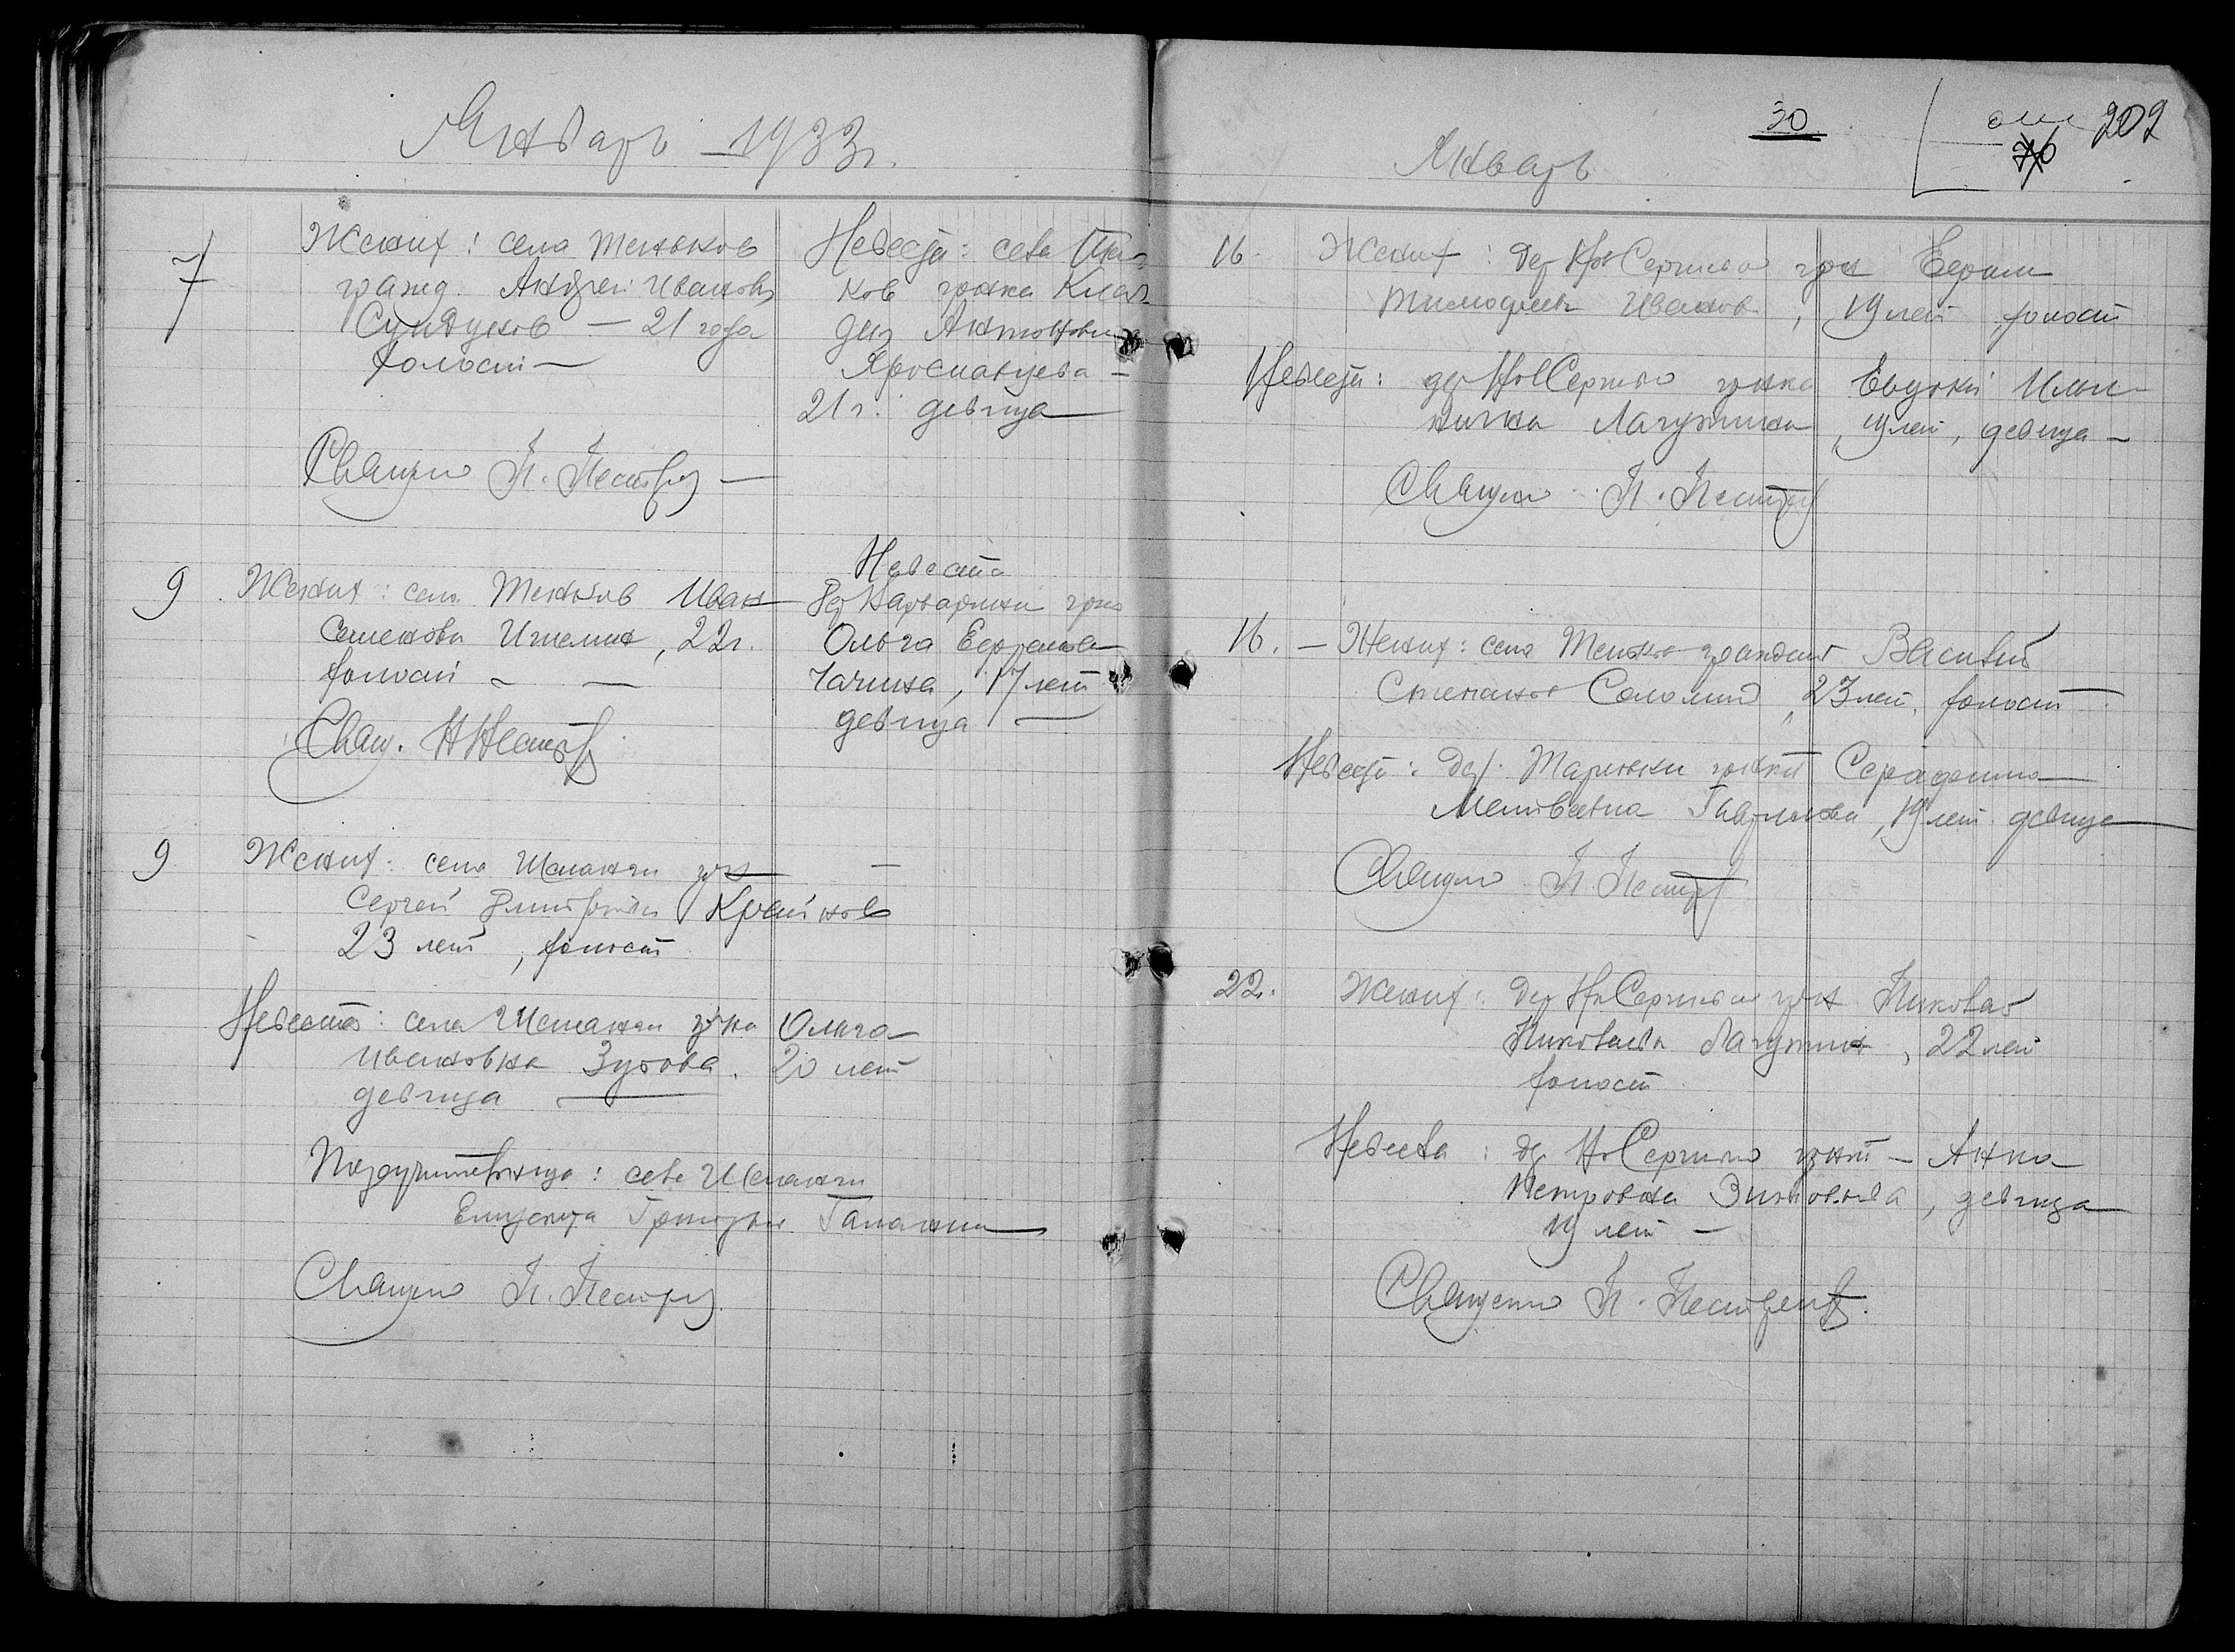 Январь 1933г.
7
Жених: села Теньков
гражд. Андрей Иванов
Сундуков — 21 года
холост —
Невеста: села Тень-
ков гржка Клав-
дия Антоновна
Ярославцева —
21 г. девица
Священ П. Пестр
9 Жених: села Теньков Иван
Семенов Ижелин, 22г.
холост —
Невеста
дер Варварини грж
Ольга Ефремова
Чагина, 17 лет
девица —
Свящ. П Пест
9 Жених: села Шеланги гр
Сергей Дмитриев Крайнов
23 лет, холост
Невеста: села Шеланги гржка Ольга
Ивановна Зубова. 20 лет
девица
Поручительница: села Шеланги
Григорьев
Священ П. Пестр
30
209
Январь
16. Жених: дер Нов Сергиево грж
Тимофеев Иванов, 19 лет, холост
Невеста: дер Нов Сергиево гржка Евдокия Ильи-
нична Лагунина, 19 лет, девица —
Священ П. Пестр
16. — Жених: села Теньков гражданин Василий
Степанов Соломин, 23 лет, холост
Невеста: дер. гржка Серафима
Матвеевна Гаврилова, 19 лет девица
Священ П. Пестр
22. Жених: дер Нов Сергиево грж Николай
Николаев Лагунин, 22 лет
холост
Невеста: дер Нов Сергиево — Анна
Петровна Зиновьева, девица
19 лет —
Священ П. Пестр